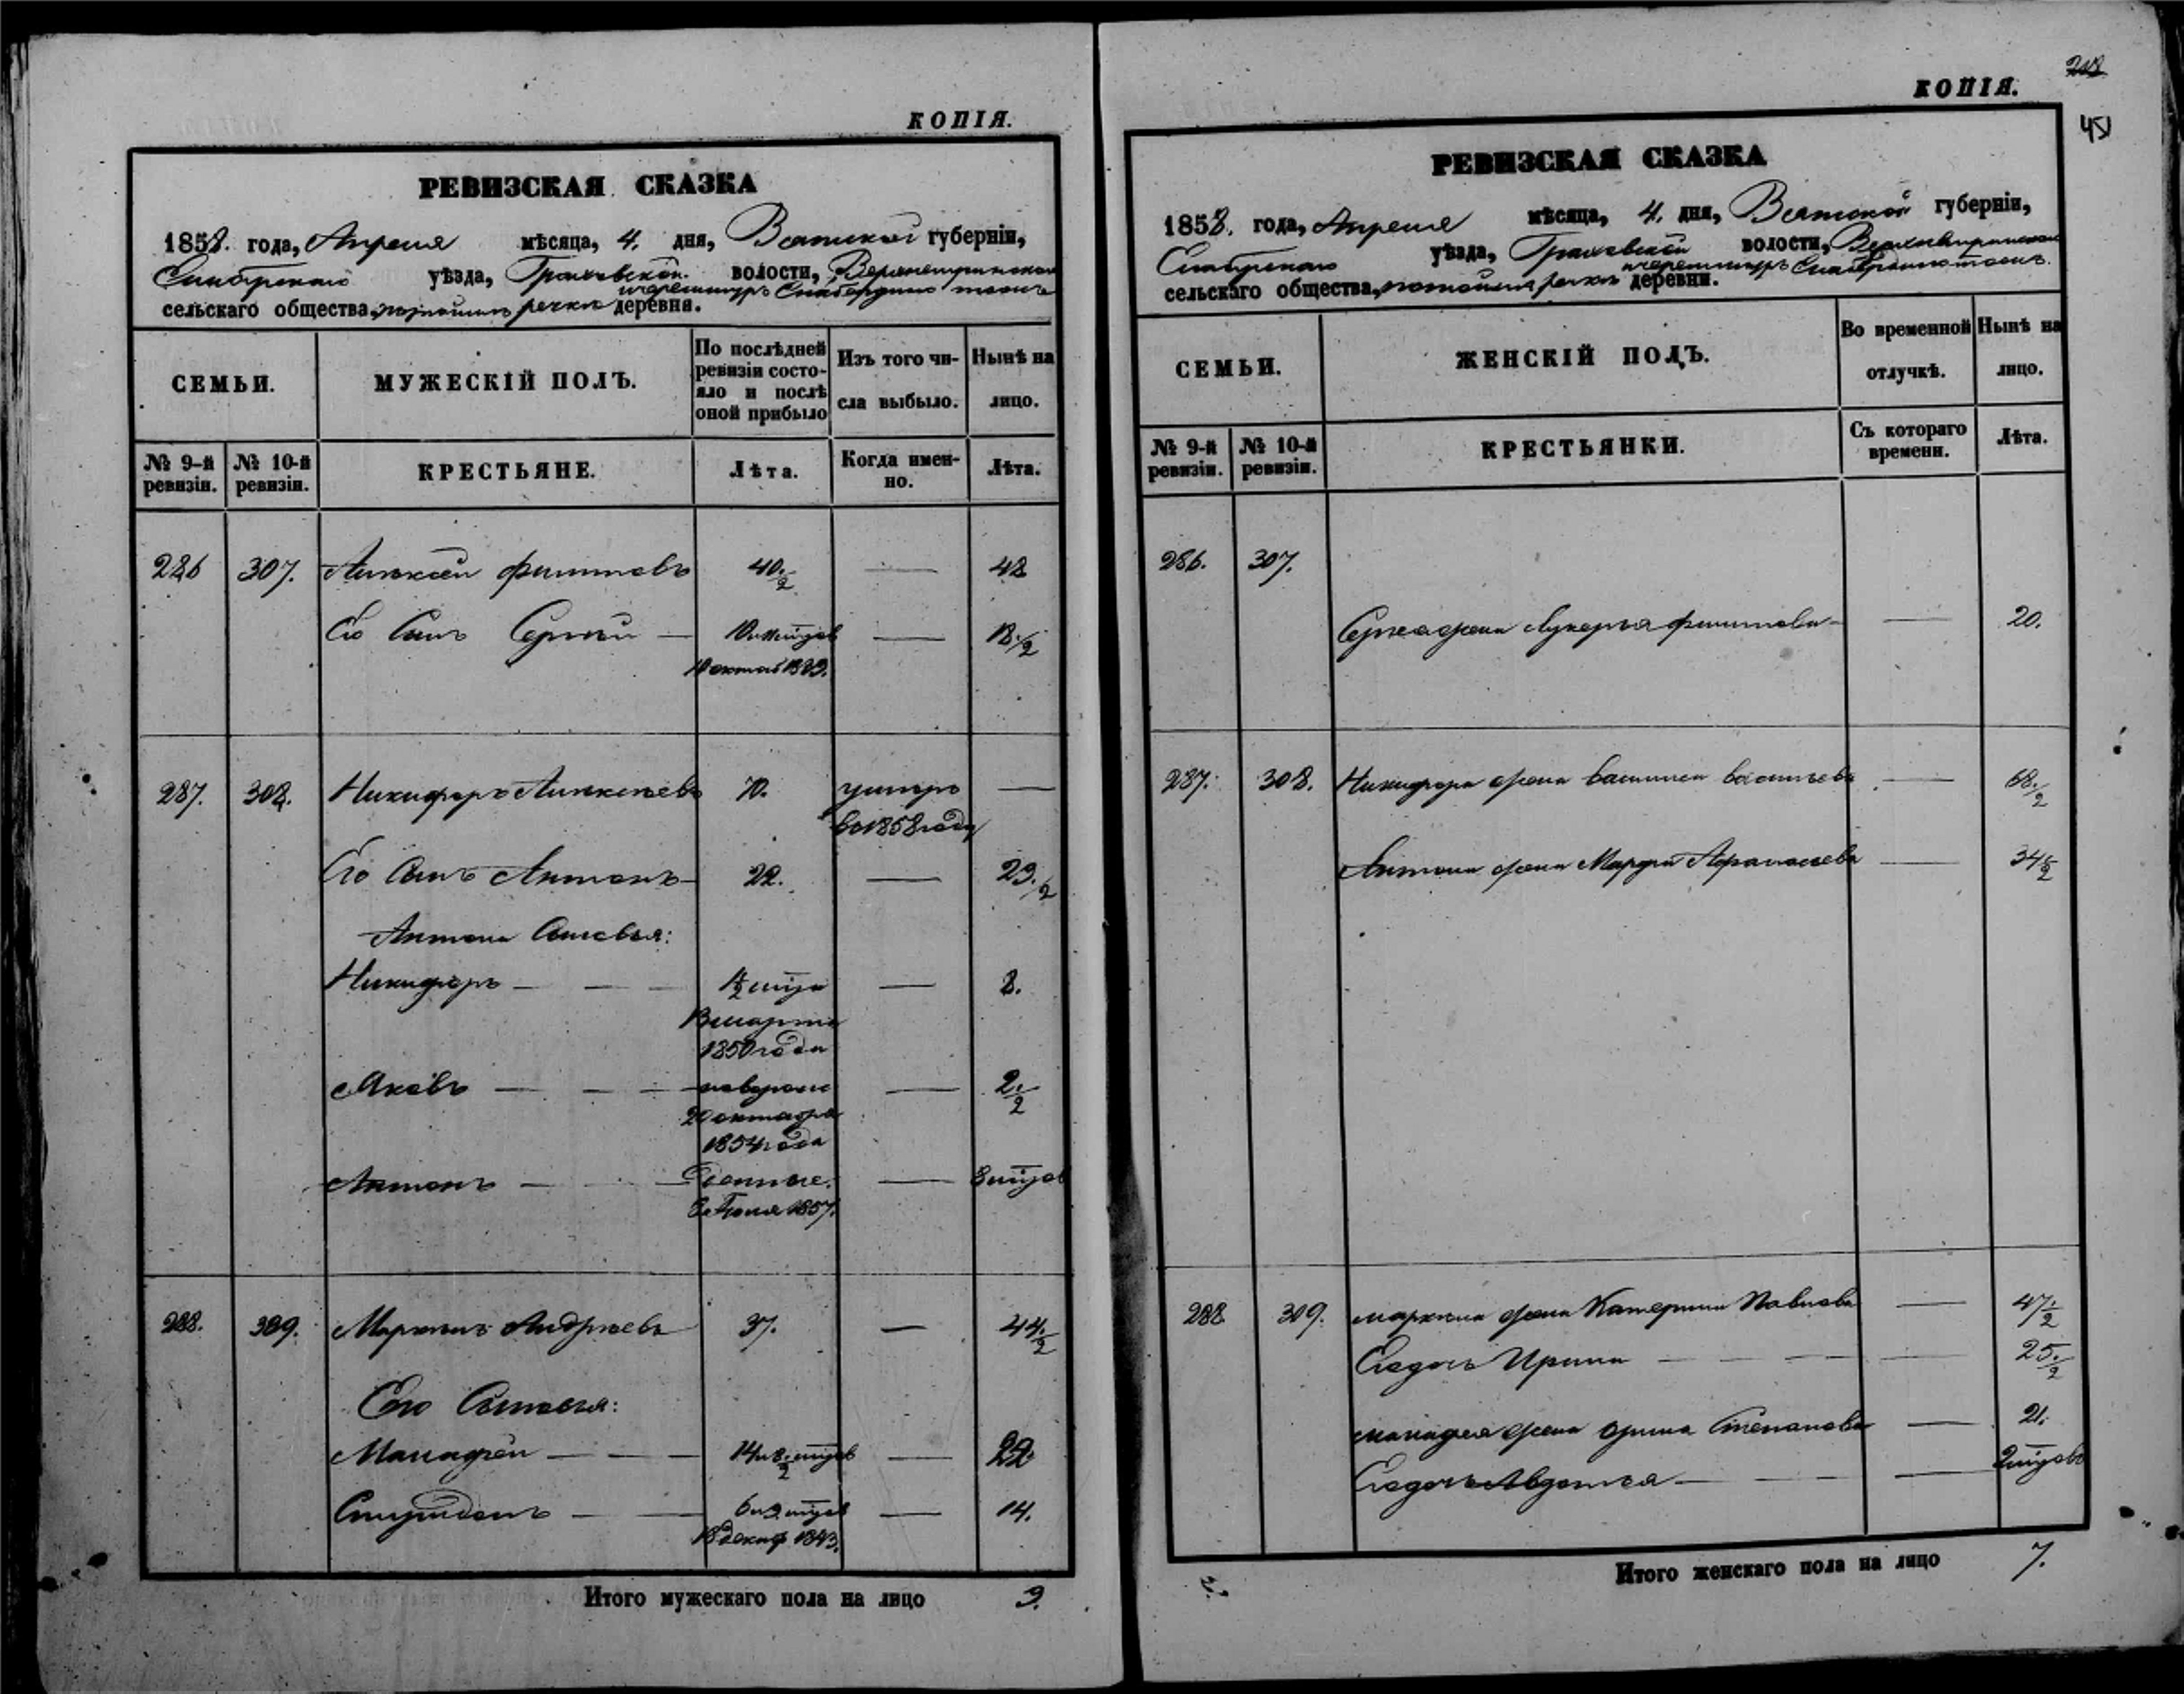 КОПІЯ.
РЕВИЗСКАЯ СКАЗКА
1858. года, Апреля мѣсяца, 4. дня, Вятской губерніи,
уѣзда, Граховской волости,
сельскаго общества, речки деревня.
СЕМЬИ.
МУЖЕСКІЙ ПОЛЪ.
По послѣдней ревизіи состояло и послѣ оной прибыло
Изъ того числа выбыло.
Нынѣ на лицо.
№ 9-й ревизіи.
№ 10-й ревизіи.
КРЕСТЬЯНЕ.
Лѣта.
Когда именно.
Лѣта.
286 307. Алексѣй Филиповъ 40 1/2 — 48
Его Сынъ Сергѣй — — 18 1/2
287. 308. Никифоръ Алексѣевъ 70. умеръ —
во 1858 году
Его Сынъ Антонъ — 22. — 29. 1/2
Антона Сыновья:
Никифоръ — — — — 8.
1850 года
Яковъ — — — — 2. 1/2
20 октября
1854 года
Антонъ — — —
1857.
288. 309. Андрѣевъ 37. — 44 1/2
Его Сыновья:
Манафей — — — 22
Спиридонъ — — — 14.
18 декаб 1843.
Итого мужескаго пола на лицо 9.
208
КОПІЯ.
451
РЕВИЗСКАЯ СКАЗКА
1858. года, Апреля мѣсяца, 4. дня, Вятской губерніи,
уѣзда, Граховской волости,
сельскаго общества, речки деревни.
СЕМЬИ.
ЖЕНСКІЙ ПОЛЪ.
Во временной отлучкѣ.
Нынѣ на лицо.
№ 9-й ревизіи.
№ 10-й ревизіи.
КРЕСТЬЯНКИ.
Съ котораго времени.
Лѣта.
286. 307.
Сергея жена Лукерья Филипова — — 20.
287. 308. Никифора жена Василиса Васильева — 68. 1/2
Антона жена Марфа Афанасьева — 34 1/2
288 309. жена Катерина Павлова — 47. 1/2
Ея дочь Ирина — — — 25. 1/2
Манафея жена Орина Степанова — 21.
Ея дочь Авдотья — — —
Итого женскаго пола на лицо 7.